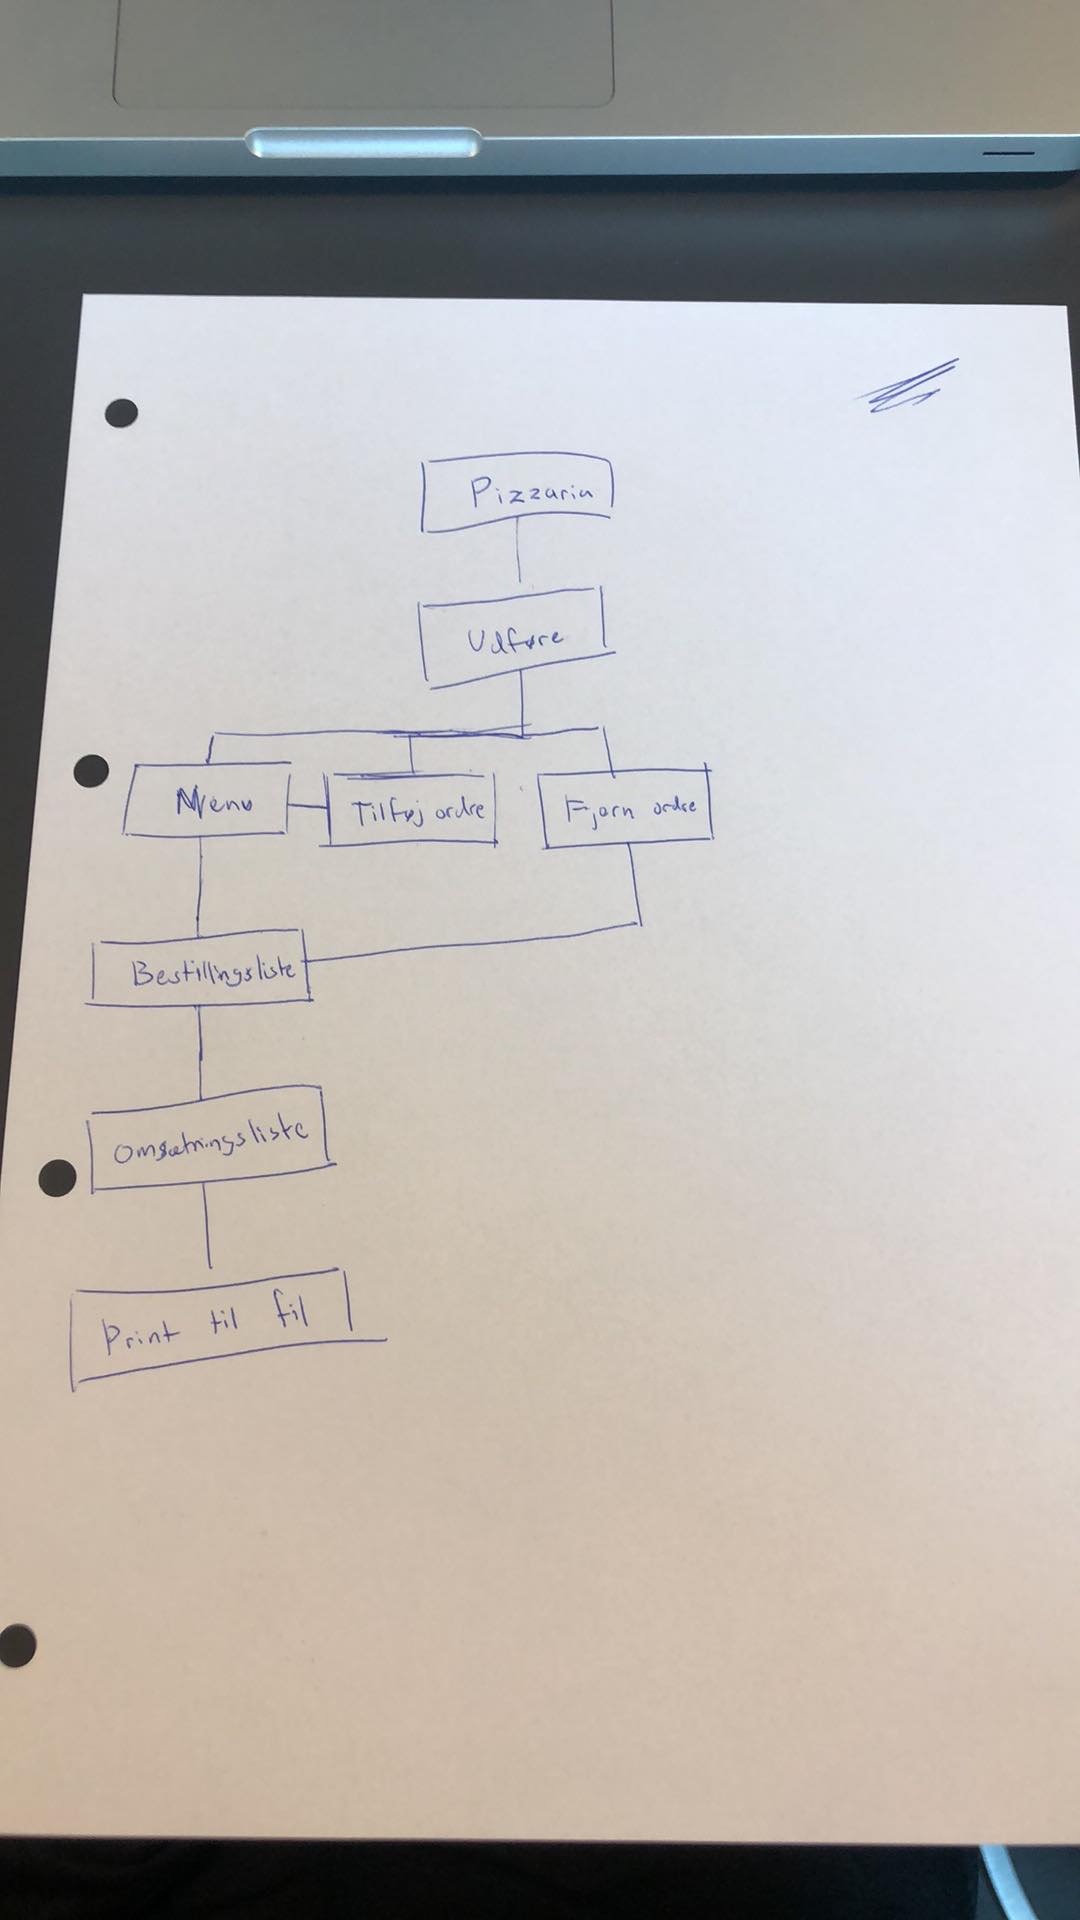 Pizzaria
Udføre
Menu
Tilføj ordre
Fjern ordre
Bestillingsliste
Omsætningsliste
Print til fil